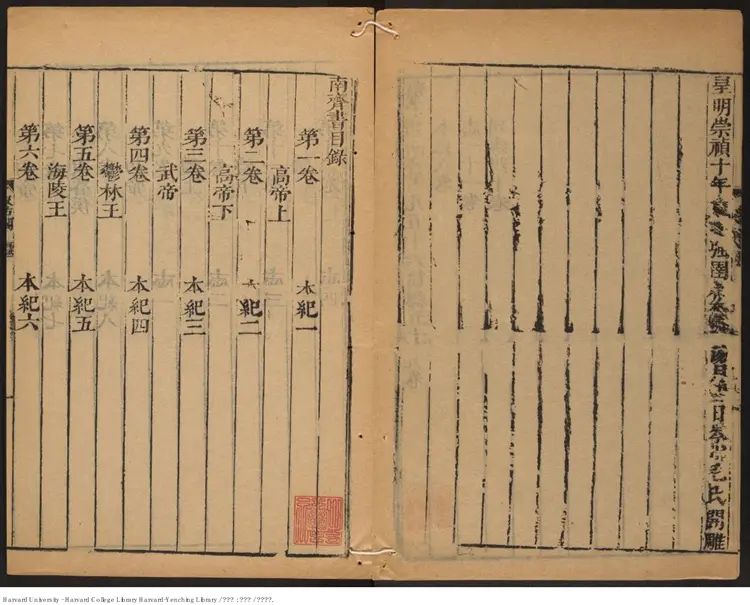 皇明崇禎十年毛氏開雕
南齊書目錄
第一卷 本紀一
高帝上
第二卷 本紀二
高帝下
第三卷 本紀三
武帝
第四卷 本紀四
鬱林王
第五卷 本紀五
海陵王
第六卷 本紀六
Harvard University - Harvard College Library Harvard-Yenching Library / ??? : ??? / ????.